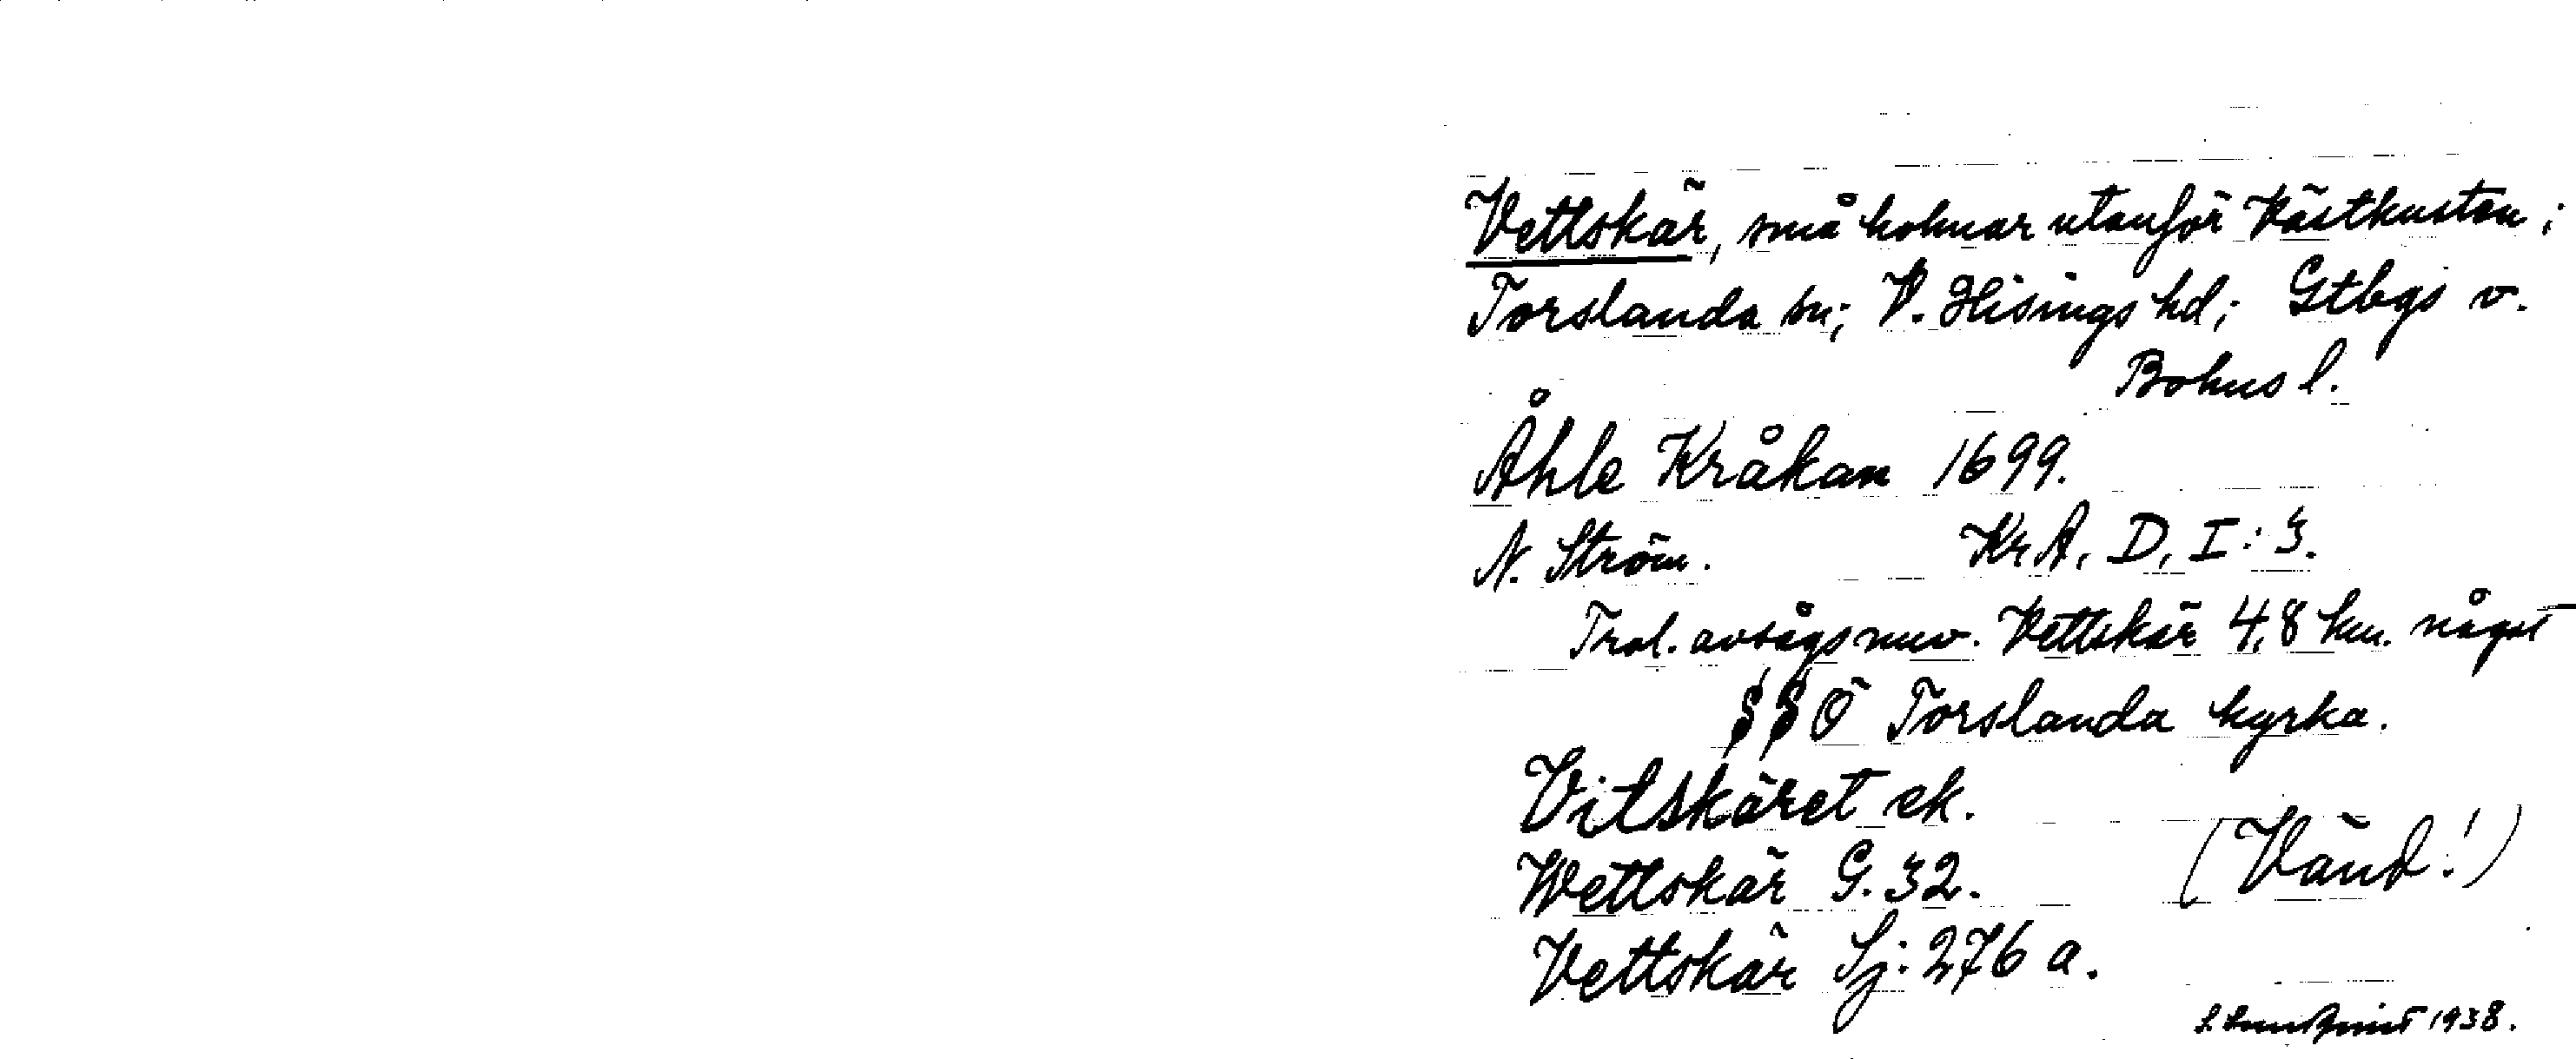 Vettskär, små holmar utanför Västkusten;
Torslanda sn; V. Hisings hd; Gtbgs o.
Bohus l.
Åhle Kråkan 1699.
N. Ström. Kr A. D, I: 3.
Trol. avsågs nuv. Vettskär 4,8 km. något
SSÖ Torslanda kyrka.
Vitskäret ek.
Wettskär G. 32. (Vänd!)
Vettskär Sj: 276 a.
1938.